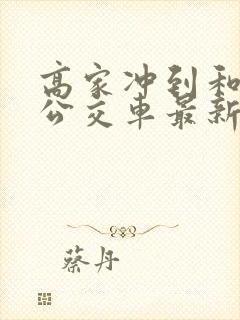 高家冲到和
公交车最新
蔡丹